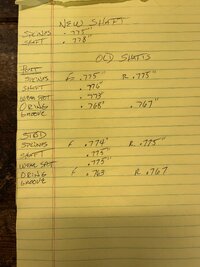 NEW SHAFT
SPLINES .775"
SHAFT .778"
OLD SHAFTS
PORT
SPLINES F .775" R .775"
SHAFT .776"
WEAR SPOT .773"
O RING .768" .767"
GROOVE
STBD
SPLINES F .774" R .775"
SHAFT .775"
WEAR SPOT .775"
O RING F .763 R .767
GROOVE